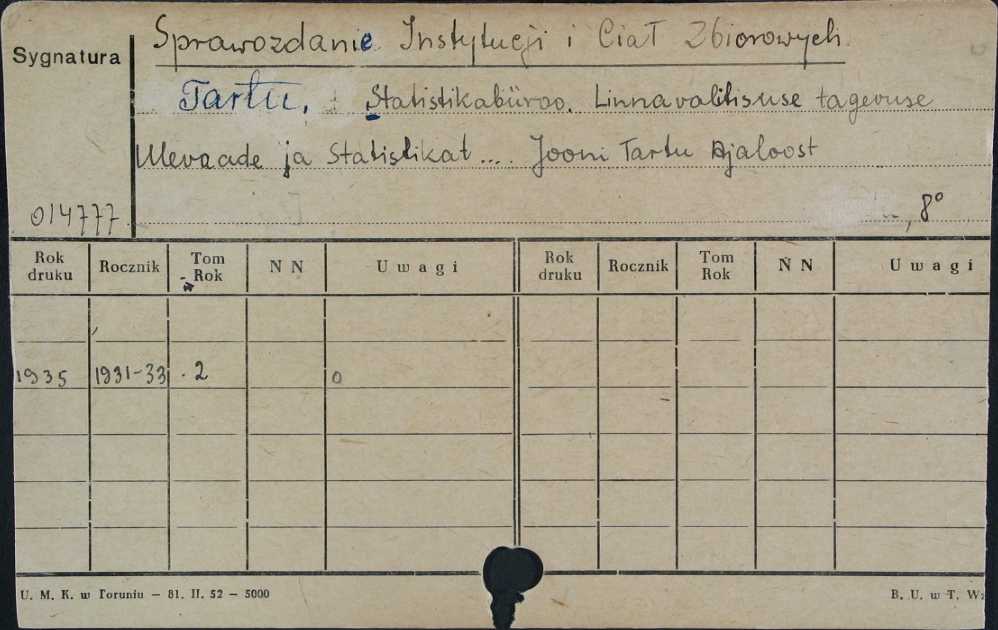 Sprawozdanie Instytucji i Ciał Zbiorowych
Sygnatura
Tartu, Statistikabüroo. Linnavalitisuse tagevuse
Ulevaade ja Statistikat ... Jooni Tartu Ajaloost
014777
, 8°
Rok druku Rocznik Tom Rok N N Uwagi Rok druku Rocznik Tom Rok N N Uwagi
1935 1931-33 . 2 0
U. M. K. w Toruniu – 81. II. 52 – 5000 B. U. w T. W: